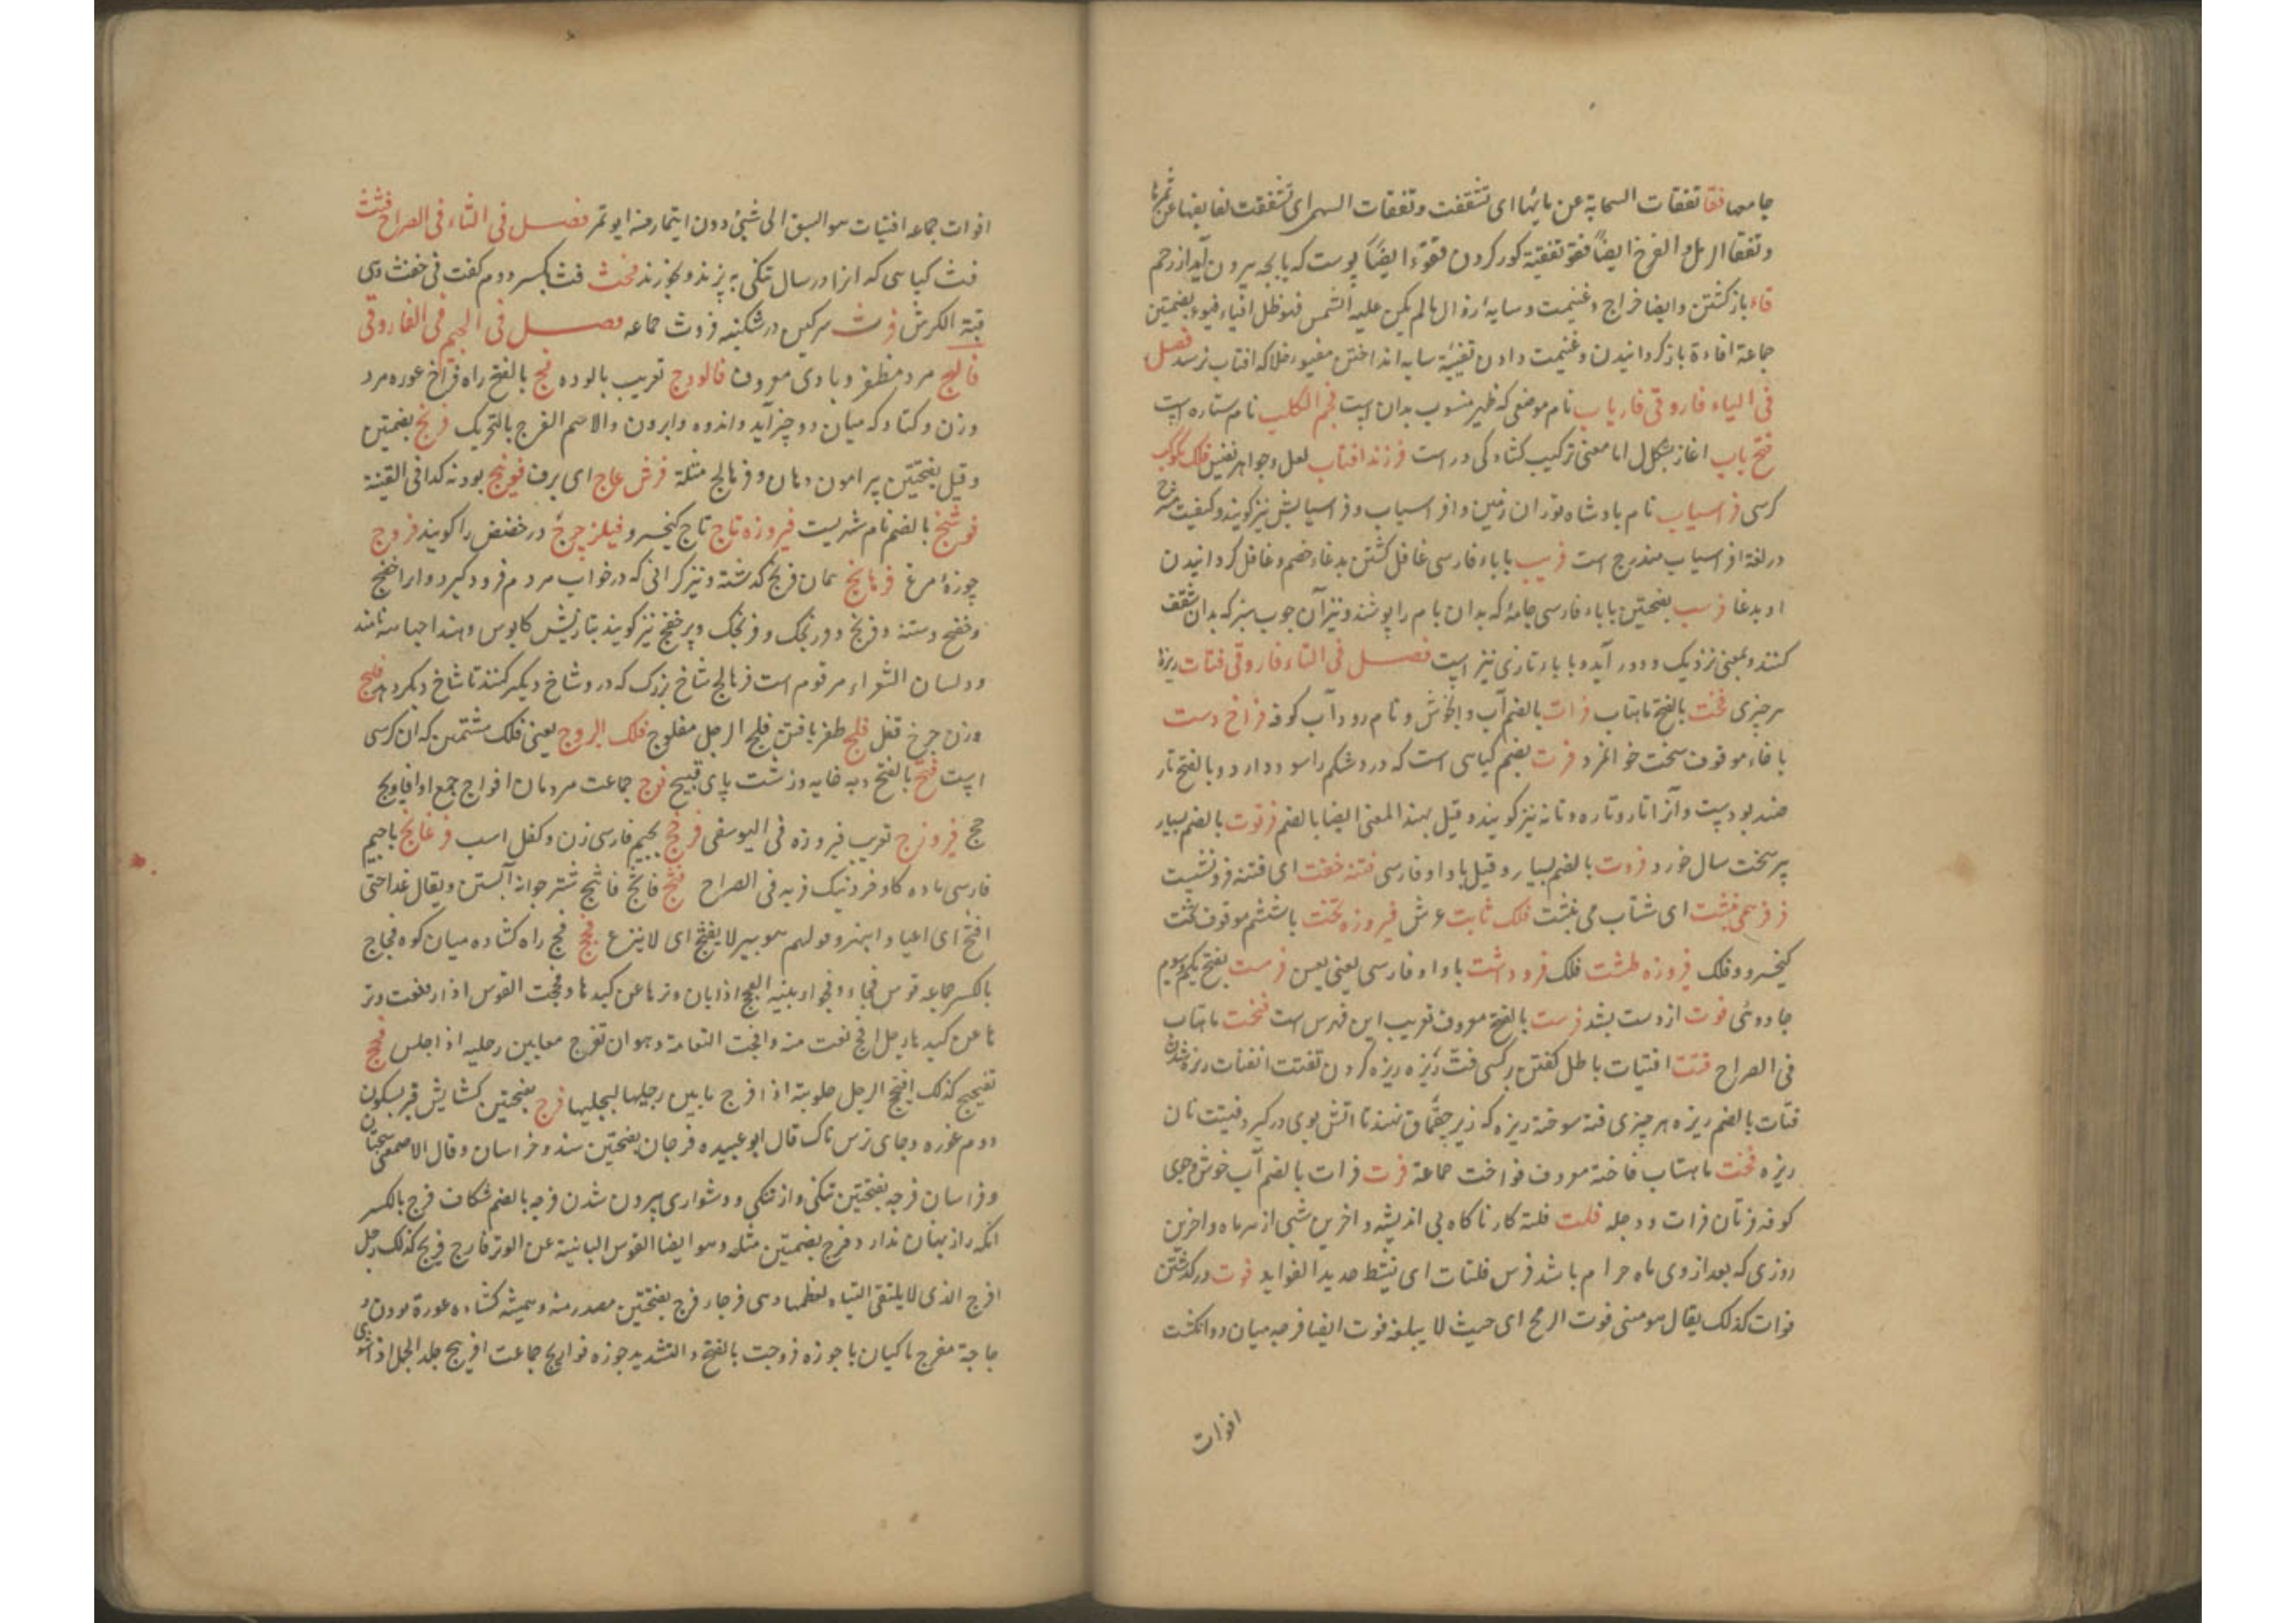 جامعها فقا تفقات السحابة عن مائها ای تشققت وتفقات البهمی ای تشققت لفایفها عن ثمرها
وتفقا الدمل والقرح ایضاً فقؤ تفقئة کور کردن فقوء ایضاً پوست که با بچه بیرون آید از رحم
فاء بازگشتن وایضا خراج وغنیمت وسایه زوال مالم یکن علیه الشمس فهو ظل افیاء فیوء بضمتین
جماعة افاءة بازگردانیدن وغنیمت دادن تفیئة سایه انداختن مفیوء خلاکه افتاب نرسد فصل
فی الباء فاروقی فاریاب نام موضعی که ظهیر منسوب بدان است فم الکلب نام ستاره است
فتح باب اغاز بشکل اما معنی ترکیب کشادگی در است فرزند افتاب لعل وجواهر نفیس فلک کوکب
کرسی فراسیاب نام پادشاه توران زمین وافراسیاب وفراسیابش نیز گویند وکیفیت شرح
در لغة افراسیاب مندرج است فریب باباء فارسی غافل گشتن بدغاء خصم وغافل گردانیدن
او بدغا فرسب بفتحتین باباء فارسی جامه که بدان بام را پوشند ونیز آن چوب ستبر که بدان سقف
کنند وبمعنی نزدیک ودور آید وباباء تازی نیز است فصل فی التاء فاروقی فتات ریزه
هر چیزی فخت بالفتح ماهتاب فرات بالضم آب و خوش ونام رود آب کوفه فراخ دست
باخاء موقوف سخت جوانمرد فرت بضم گیاهی است که درد شکم را سود دارد وبالفتح تار
ضد پود است وآنرا تار وتاره وتانه نیز گویند وقیل بهذا المعنی ایضا بالضم فرتوت بالضم بسیار
پیر سخت سال خورد فروت بالضم بسیار وقیل باواو فارسی فتنه خفت ای فتنه فرونشست
فرفر همی نبشت ای شتاب می نبشت فلک ثابت عرش فیروزه تخت باششم موقوف تخت
کیخسرو وفلک فیروزه طشت فلک فرودشت باواو فارسی یعنی فرست بفتح یکم وسوم
جادوئی فوت از دست بشد فرست بالفتح معروف تعریب این فهرس است فخت ماهتاب
فی الصراح فتت افتیات باطل گفتن بر کسی فت ریزه ریزه کردن تفتت انفتات ریزه شدن
فتات بالضم ریزه هر چیزی فتة سوخته ریزه که زیر چقماق نهند تا اتش بوی در گیرد فتیت نان
ریزه فخت ماهتاب فاخته معروف فواخت جماعة فرت فرات بالضم آب خوش وجوی
کوفه فرتان فرات ودجله فلت فلتة کار ناگاه بی اندیشه واخرین شبی از هر ماه واخرین
روزی که بعد از وی ماه حرام باشد فرس فلتات ای نشط حدید الفواید فوت در گذشتن
فوات کذلک یقال هو منی فوت الرمح ای حیث لا یبلغه فوت ایضا فرجه میان دو انگشت
افوات
افوات جماعه افتیات هو السبق الی شیٔ دون ایتمار من یوتمر فصل فی الثاء فی الصراح فثث
فث گیاهی که انرا در سال تنگی بپزند وبخورند فحث فث بکسر دوم گفت فی حفث وهی
قبة الکرش فرث سرگین در شکنبه فروث جماعه فصل فی الجیم فی الفاروقی
فالج مرد مظفر وبادی معروف فالودج تعریب پالوده فج بالفتح راه فراخ عوره مرد
وزن وکشادگی میان دو چیز آید واندوه وابرون والاسم الفرج بالتحریک فرنج بضمتین
وقیل بفتحتین پیرامون دهان وفرنالج مثله فرش عاج ای برف فوتنج پودنه کذا فی القنیة
فوشنج بالضم نام شهریست فیروزه تاج تاج کیخسرو فیلزچرخ درخضض را گویند فروج
چوزه مرغ فرهانج همان فرنج گذشته ونیز گرانی که در خواب مردم فرود گیرد واورا خفج
وخفج وستنه وفرنج ودورنجک وفرنجک وبرخفج نیز گویند بتازیش کابوس وهندا چهاسه نامند
ودلسان الشعراء مرقوم است فرهالج شاخ بزرگ که در وشاخ دیگر کنند تا شاخ دیگر دهد فلج
وزن چرخ قفل فلج ظفر یافتن فلج الرجل مفلوج فلک البروج یعنی فلک هشتمین که ان کرسی
است فنج بالفتح دبه خایه وزشت پای قبیح فوج جماعت مردمان افواج جمع اوافاویج
حج فیروزج تعریب فیروزه فی الیوسفی فرج بجیم فارسی زن وکفل اسب فرغانج باجیم
فارسی ماده گاو فربه نیک فربه فی الصراح فثج فاثج فاثج شتر جوانه آبستن ویقال غدا حتی
افثج ای اعیا وانبهر وقولهم هو بیر لا یفثج ای لا ینزع فجج فج راه گشاده میان کوه فجاج
بالکسر جماعه قوس فجاء وفجواء بینة الفجج اذا بان وترها عن کبدها وفججت القوس اذا رفعت وتر
ها عن کبدها رجل افج نعت منه وافجت النعامة وهو ان تفرج مابین رجلیه اذا جلس فحج
تفحیج کذلک افحج الرجل حلوبته اذا افرج مابین رجلیها لیحلبها فرج بفتحتین گشایش فرج بسکون
دوم عوره وجای ترس ناک قال ابو عبیده فرجان بفتحتین سند وخراسان وقال الاصمعی سجستان
وخراسان فرجه بفتحتین تنگی واز تنگی ودشواری بیرون شدن فرجه بالضم شکاف فرج بالکسر
انکه راز پنهان ندارد وفرج بضمتین مثله وهو ایضا القوس الباینة عن الوتر فارج فریج کذلک رجل
افرج الذی لا یلتقی الیتاه لعظمها وهی فرجاء فرج بفتحتین مصدر منه وهمیشه گشاده عورة بودن و
جاجة مفرج ماکیان باجوزه فروجت بالفتح والتشدید جوزه فراریج جماعت افریج جلد الجمل اذا شوی